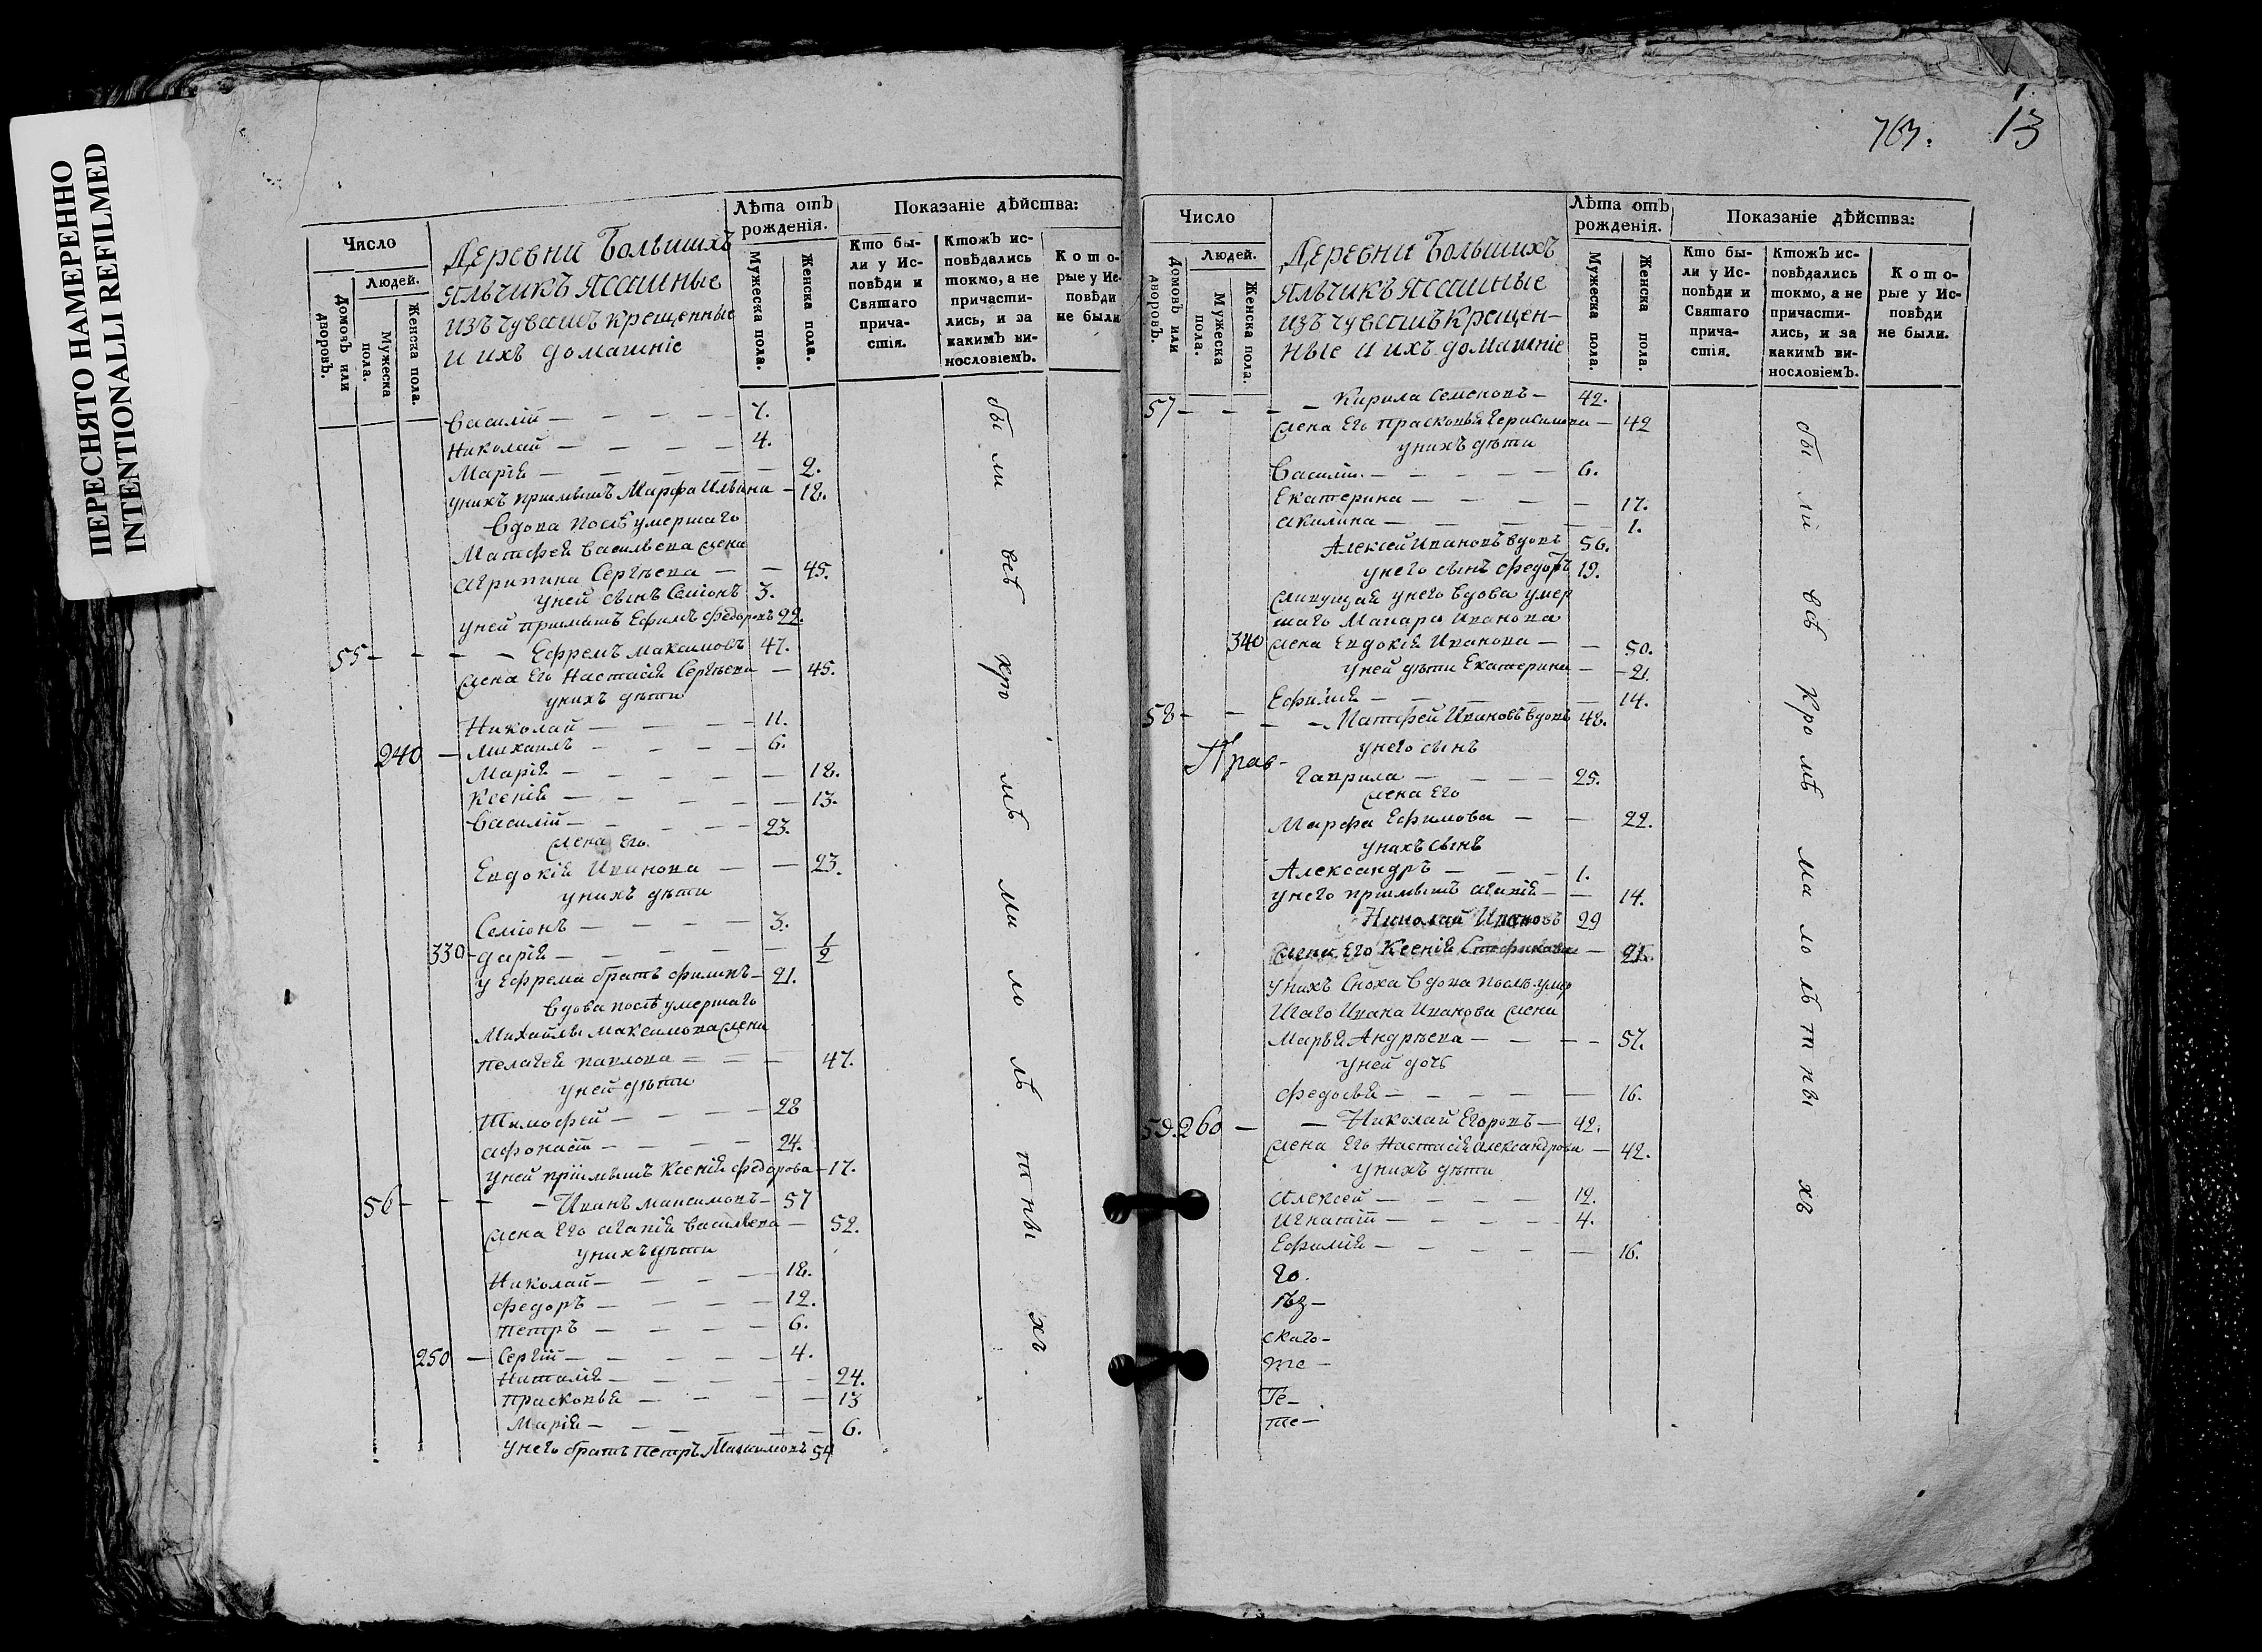 ПЕРЕСНЯТО НАМЕРЕННО
INTENTIONALLI REFILMED
Число
Людей.
Домовъ или дворовъ.
Мужеска пола.
Женска пола.
Деревни Большихъ
Яльчикъ Ясашные
изъ чувашъ крещенные
и ихъ домашніе
Лѣта отъ рожденія.
Мужеска пола.
Женска пола.
Показаніе дѣйства:
Кто были у Исповѣди и Святаго причастія.
Ктожъ исповѣдались токмо, а не причастились, и за какимъ винословіемъ.
Которые у Исповѣди не были
Василій — 7.
Николай — 4.
Марія — 2.
у нихъ пріимышъ Марфа Ильина — 18.
Вдова послѣ умершаго
Матфея Васильева жена
Агрипина Сергѣева — 45.
у ней сынъ Семіонъ 3.
у ней пріимышъ Ефимъ Федоровъ 22.
55 — Ефремъ Максимовъ 47.
жена Его Настасія Сергѣева — 45.
у нихъ дѣти
Николай — 11.
240 — Михаилъ — 6.
Марія — 18.
Ксенія — 13.
Василій — 23.
жена Его
Евдокія Иванова — 23.
у нихъ дѣти
Семіонъ — 3.
330 — Дарія — 1/2
у Ефрема братъ Филипъ — 21.
Вдова послѣ умершаго
Михайлы Максимова жена
Пелагея Павлова — 47.
у ней дѣти
Тимофей — 28
Афонасій — 24.
у ней пріимышъ Ксенія Федорова — 17.
56 — Иванъ Максимовъ — 57
жена Его Агапія Васильева — 52.
у нихъ дѣти
Николай — 18.
Федоръ — 12.
Петръ — 6.
250 — Сергій — 4.
Наталія — 24.
Прасковья — 13
Марія — 6.
у него братъ Петръ Максимовъ 54
бы ли всѣ кро мѣ ма ло лѣ т ны хъ
763. 13
Число
Людей.
Домовъ или дворовъ.
Мужеска пола.
Женска пола.
Деревни Большихъ
Яльчикъ Ясашные
изъ чувашъ крещен-
ные и ихъ домашніе
Лѣта отъ рожденія.
Мужеска пола.
Женска пола.
Показаніе дѣйства:
Кто были у Исповѣди и Святаго причастія.
Ктожъ исповѣдались токмо, а не причастились, и за какимъ винословіемъ.
Которые у Исповѣди не были.
57 — Кирила Семеновъ — 42.
жена Его Прасковья Герасимова — 42
у нихъ дѣти
Василій — 6.
Екатерина — 17.
Акилина — 1.
Алексей Ивановъ вдовъ 56.
у него сынъ Федоръ 19.
живущая у него вдова умер
шаго Макара Иванова
340 жена Евдокія Иванова — 50.
у ней дѣти Екатерина — 21.
Ефимія — 14.
58 — Матфей Ивановъ вдовъ 48.
у него сынъ
Прав-
Гаврила — 25.
жена Его
Марфа Ефимова — 22.
у нихъ сынъ
Александръ — 1.
у него пріимышъ Агапія — 14.
Николай Ивановъ 29
жена Его Ксенія — 21.
у нихъ сноха вдова послѣ умер
шаго Ивана Иванова жена
Марья Андрѣева — 57.
у ней дочь
Федосья — 16.
59. 260 — Николай Егоровъ — 42.
жена Его Настасія Александрова — 42.
у нихъ дѣти
Алексей — 12.
Игнатій — 4.
Ефимія — 16.
го.
скаго-
те —
Ге —
те —
бы ли всѣ кро мѣ ма ло лѣ т ны хъ